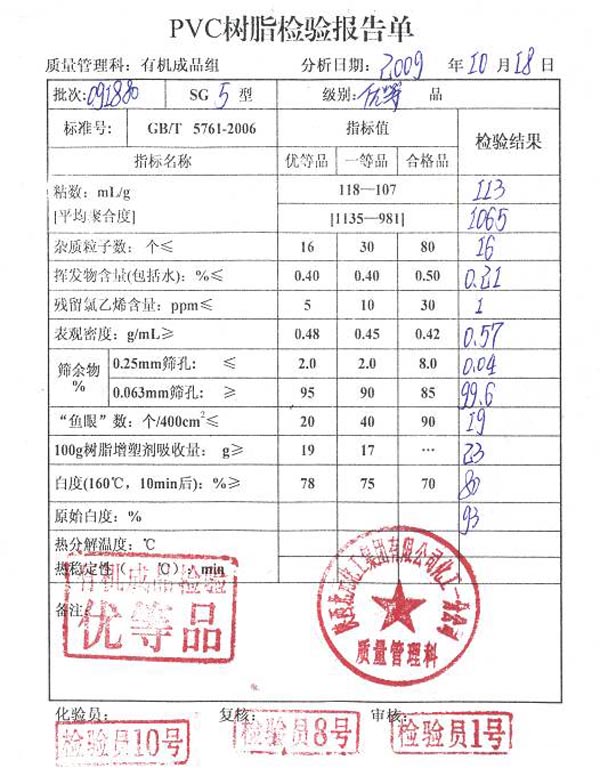 PVC树脂检验报告单
质量管理科：有机成品组 分析日期：2009 年 10 月 18 日
批次：091880 SG 5 型 级别：优等 品
标准号： GB/T 5761-2006 指标值 检验结果
指标名称 优等品 一等品 合格品
粘数：mL/g 118—107 113
[平均聚合度] [1135—981] 1065
杂质粒子数： 个≤ 16 30 80 16
挥发物含量(包括水)：%≤ 0.40 0.40 0.50 0.21
残留氯乙烯含量：ppm≤ 5 10 30 1
表观密度：g/mL≥ 0.48 0.45 0.42 0.57
筛余物 % 0.25mm筛孔： ≤ 2.0 2.0 8.0 0.04
0.063mm筛孔： ≥ 95 90 85 99.6
“鱼眼”数：个/400cm²≤ 20 40 90 19
100g树脂增塑剂吸收量： g≥ 19 17 … 23
白度(160℃，10min后)：%≥ 78 75 70 80
原始白度：% 93
热分解温度：℃
热稳定性（ ℃）：min
有机成品检验
备注：
优等品
陕西北元化工集团有限公司化工一分公司
质量管理科
化验员： 复核： 审核：
检验员10号 检验员8号 检验员1号